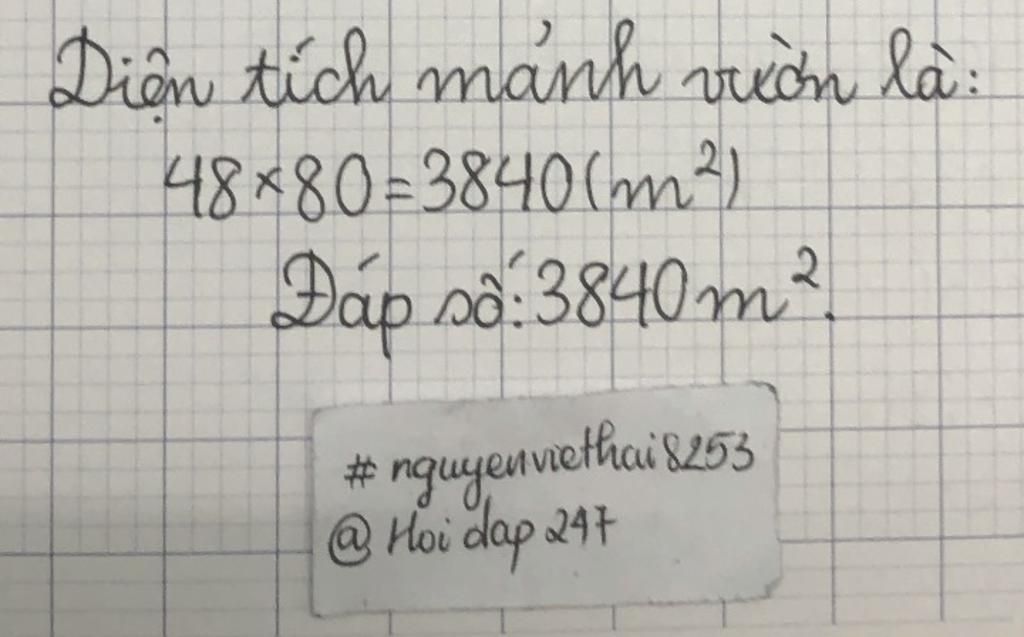 Diện tích mảnh vườn là:
48×80=3840(m²)
Đáp số: 3840m².
# nguyenviethai8253
@ Hoi dap 247